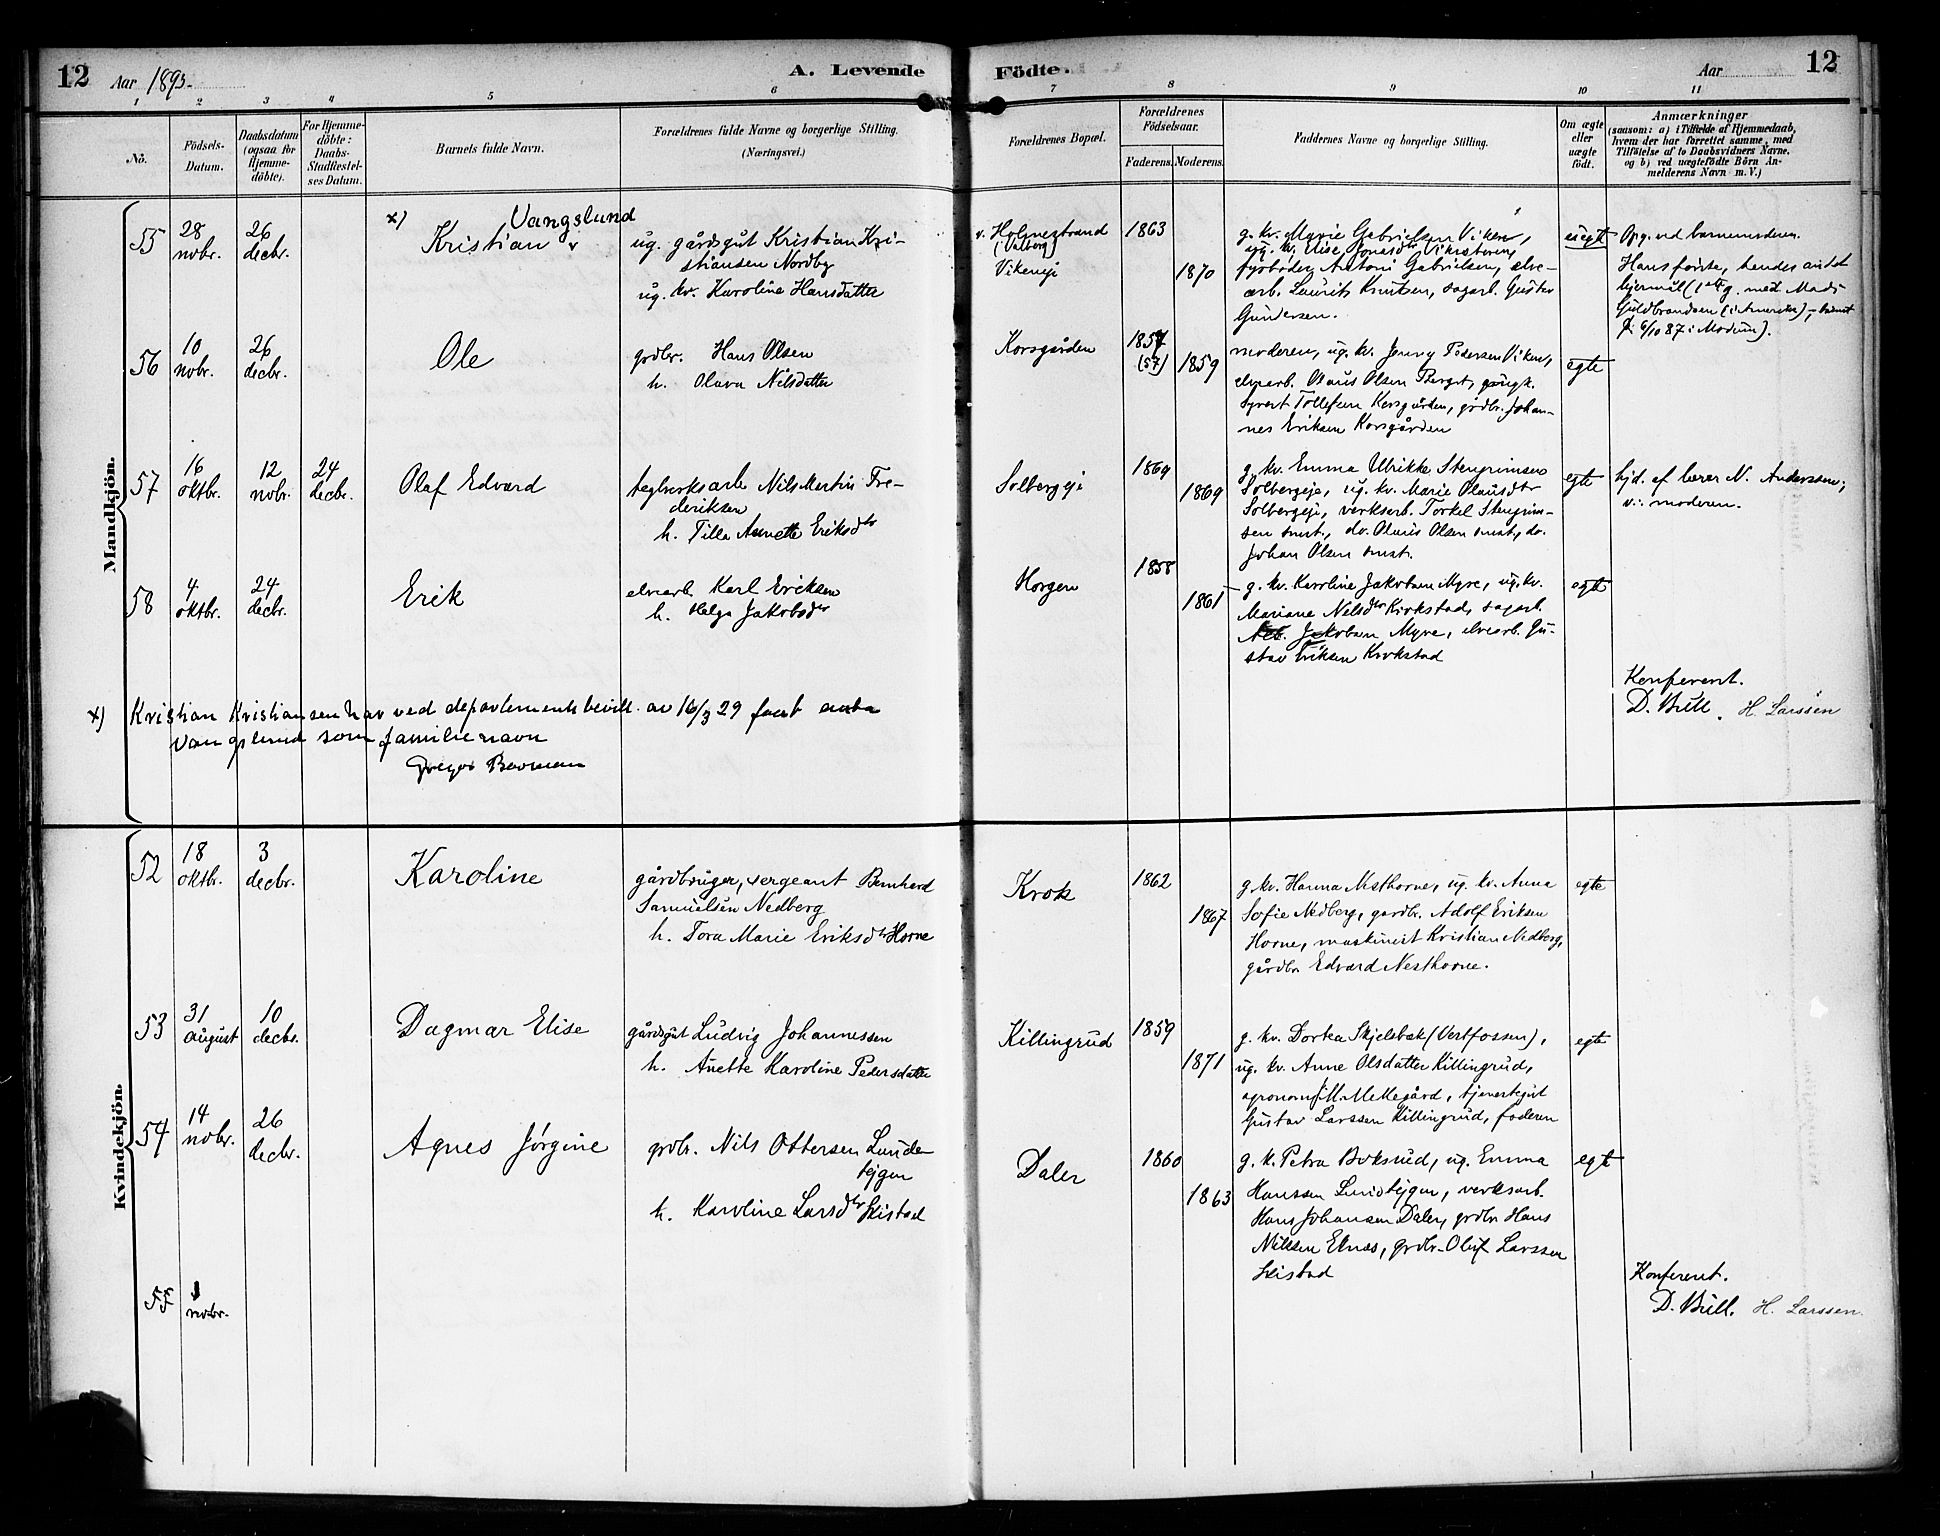 12 Aar 1893. A. Levende Födte. Aar 12
1 2 3 4 5 6 7 8 9 10 11
No.
Födsels-
Datum.
Daabsdatum
(ogsaa for
Hjemme-
döbte).
For Hjemme-
döbte:
Daabs-
Stadfæstel-
ses Datum.
Barnets fulde Navn.
Forældrenes fulde Navne og borgerlige Stilling.
(Næringsvei.)
Forældrenes Bopæl.
Forældrenes
Födselsaar.
Faderens. Moderens.
Faddernes Navne og borgerlige Stilling.
Om ægte
eller
uægte
født.
Anmærkninger
(saasom: a) i Tilfælde af Hjemmedaab,
hvem der har forrettet samme, med
Tilföielse af to Daabsvidners Navne.
og b) ved uægtefödte Börn An-
melderens Navn m. V.)
Mandkjön.
55
28
novbr.
26
decbr.
x) Vangslund
Kristian
ug. gårdsgut Kristian Kri-
stiansen Nordby
ug. kv. Karoline Hansdatter
v. Holmestrand
(Valberg)
Vikeneje
1863
1870
g. kv. Marie Gabrielsen Viken,
ug. kv. Elise Jonasdtr Vikestuen,
fyrbøder Antoni Gabrielsen, elve-
arb. Laurits Knutsen, sagarb. Gustav
Gundersen.
uegt
Opg. ved barnemoderen.
Hans første, hendes andet
lejermål (1ste g. med Mads
Guldbrandsen (i Amerika), barnet
D: 6/10 87 i Modum).
56
10
novbr.
26
decbr.
Ole
grdbr. Hans Olsen
h. Olava Nilsdatter
Korsgården
1857
(57)
1859
moderen, ug. kv. Jenny Pedersen Viken,
elvearb. Olaus Olsen Berget, ungk.
Syvert Tollefsen Korsgården, grdbr. Johan-
nes Eriksen Korsgården
egte
57
16
oktbr.
12
novbr.
24
decbr.
Olaf Edvard
teglverksarb Nils Martin Fre-
deriksen
h. Tilla Annette Eriksdtr
Solbergeje
1869
1869
g. kv. Emma Ulrikke Stengrimsen
Solbergeje, ug. kv. Marie Olausdtr
Solbergeje, verksarb. Torkel Stengrim-
sen smst., do. Olaus Olsen smst., do.
Johan Olsen smst.
egte
hjd. af lærer N. Anderssen;
v.: moderen.
58
4
oktbr.
24
decbr.
Erik
elvearb Karl Eriksen
h. Helga Jakobsdtr
Horgen
1858
1861
g. kv. Karoline Jakobsen Myre, ug. kv.
Mariane Nelsdtr Krokstad, sagarb.
Jakobsen Myre, elvearb. Gu-
stav Eriksen Krokstad
egte
Konferert.
D. Bull. H. Larssen
x) Kristian Kristiansen har ved departementsbevill. av 16/3 29 faat anta
Vangslund som familienavn
Kvindekjön.
52
18
oktbr.
3
decbr.
Karoline
gårdbruger, sergeant Bernhard
Samuelsen Nedberg
h. Tora Marie Eriksdtr Horne
Krok
1862
1867
g. kv. Hanna Nesthorne, ug. kv. Anna
Sofie Nedberg, gardbr. Adolf Eriksen
Horne, maskinist Kristian Nedberg,
gårdbr Edvard Nesthorne.
egte
53
31
august
10
decbr.
Dagmar Elise
gårdsgut Ludvig Johannessen
h. Anette Karoline Pedersdatter
Killingrud
1859
1871
g. kv. Dortea Skjelsbek (Vestfossen),
ug. kv. Anne Olsdatter Killingrud,
agronom M. Mellegård, tjenestegut
Gustav Larssen Killingrud, faderen
egte
54
14
novbr.
26
decbr.
Agnes Jørgine
grdbr. Nils Ottersen Lunde-
tejgen
h. Karoline Larsdtr Skistad
Daler
1860
1863
g. k. Petra Boksrud, ug. Emma
Hanssen Lundtejgen, verksarb.
Hans Johansen Daler, grdbr Hans
Nilssen Elnæs, grdbr. Oluf Larssen
Skistad
egte
Konferert.
D. Bull. H. Larssen.
55
1
novbr.